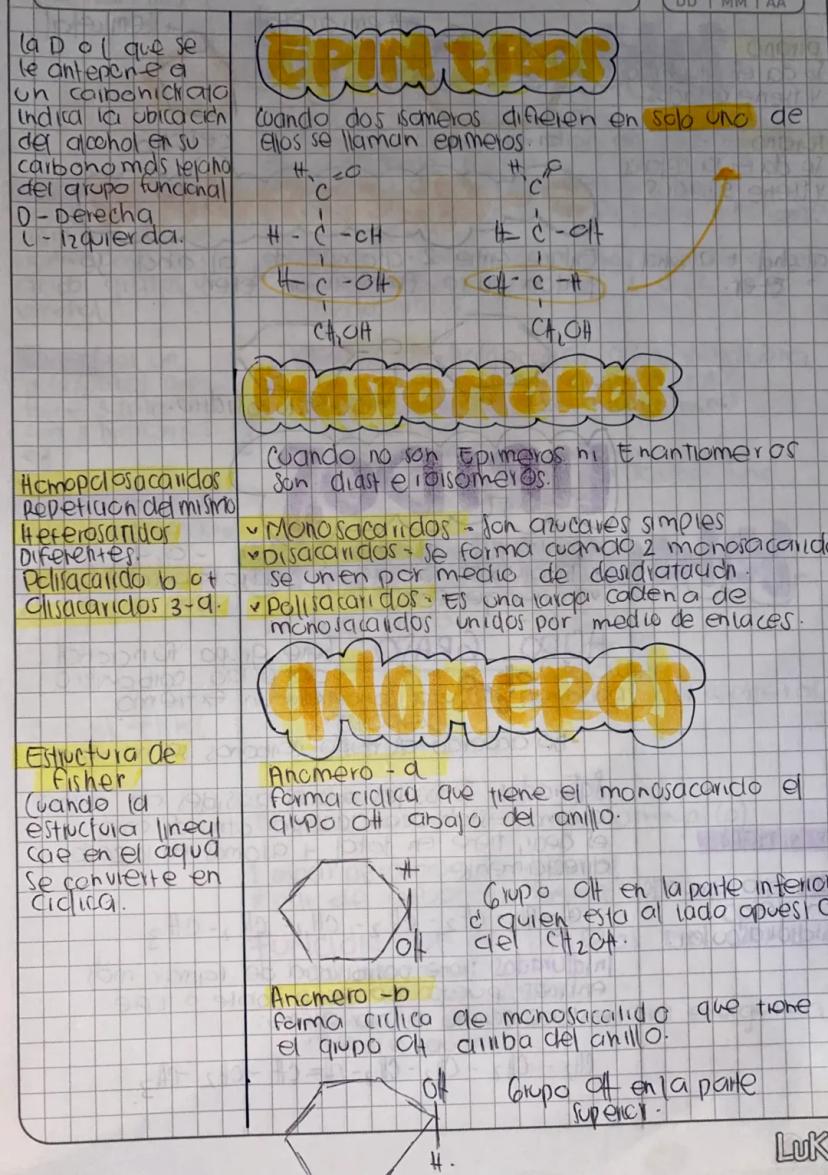 DD MM AA
la D o l que se
le antepone a
un carbohidrato
indica la ubicación
del alcohol en su
carbono más lejano
del grupo funcional
D-Derecha
L-Izquierda.
EPIMEROS
Cuando dos isomeros difieren en solo uno de
ellos se llaman epimeros.
H =O H O
C C
H - C - OH H - C - OH
H - C - OH OH - C - H
CH2OH CH2OH
DIASTOMEROS
Cuando no son Epimeros ni Enantiomeros
son diastereoisómeros.
Homopolosacaridos
Repeticion del mismo
Heterosaridos
Diferentes.
Polisacarido 10 ot
Olisacaridos 3-9.
Monosacaridos - Son azucares simples
Disacaridos - se forma cuando 2 monosacarido
se unen por medio de desidratacion.
Polisacaridos - Es una larga cadena de
monosacaridos unidos por medio de enlaces.
ANOMEROS
Estructura de
Fisher
Cuando la
estructura lineal
cae en el agua
se convierte en
ciclica.
Anomero - a
forma ciclica que tiene el monosacarido el
grupo OH abajo del anillo.
H
OH
Grupo OH en la parte inferior
o quien esta al lado opuesto
del CH2OH.
Anomero - b
forma ciclica de monosacarido que tiene
el grupo OH arriba del anillo.
OH
H.
Grupo OH en la parte
superior.
LuK